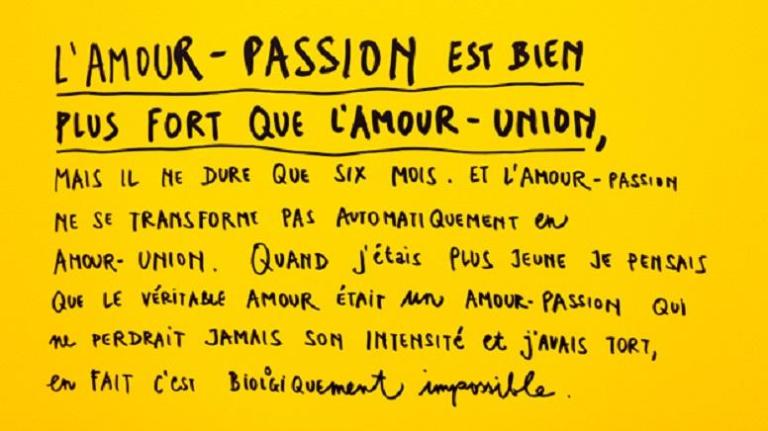 L'AMOUR-PASSION EST BIEN
PLUS FORT QUE L'AMOUR-UNION,
MAIS IL NE DURE QUE SIX MOIS. ET L'AMOUR-PASSION
NE SE TRANSFORME PAS AUTOMATIQUEMENT en
AMOUR-UNION. QUAND j'étais PLUS JEUNE JE PENSAIS
QUE LE VÉRITABLE AMOUR ÉTAIT un AMOUR-PASSION QUi
ne PERDRAIT JAMAIS SON INTENSITÉ et j'AVAIS TORT,
en FAIT C'EST BIOlOGiQUEment impossible.